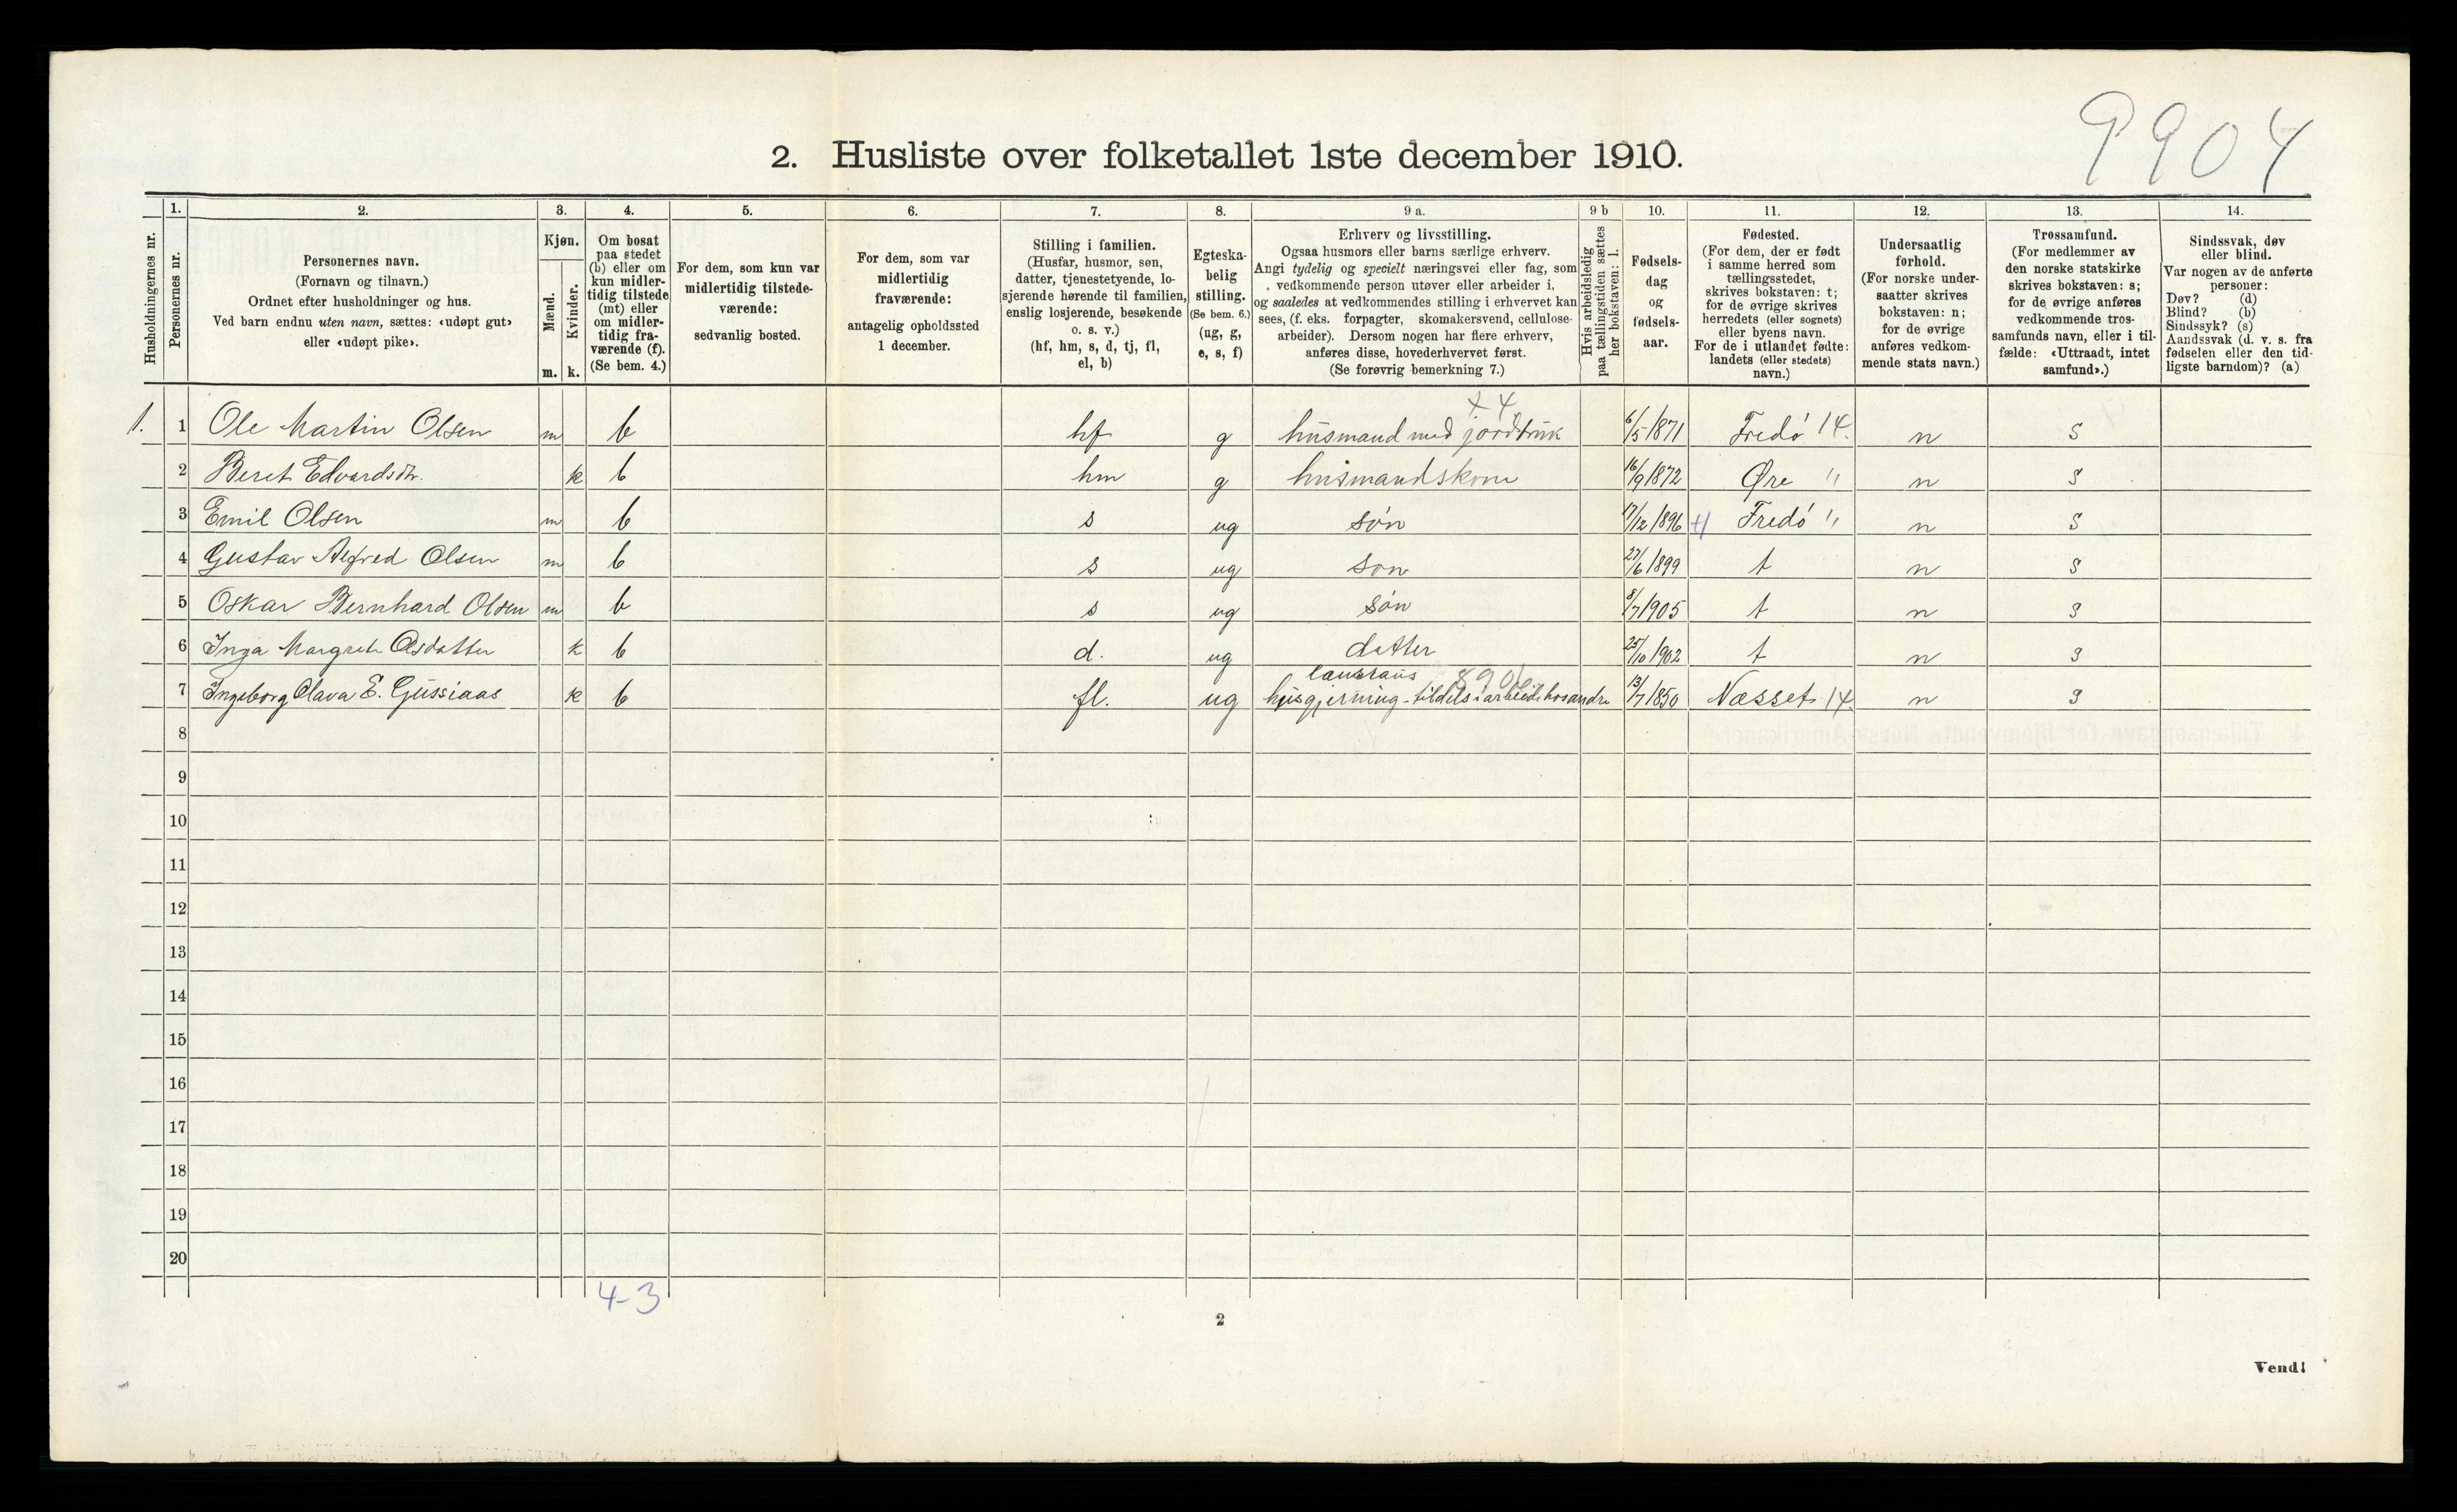 9904
2. Husliste over folketallet 1ste december 1910.
Husholdningernes nr.
1.
Personernes nr.
2.
Personernes navn.
(Fornavn og tilnavn.)
Ordnet efter husholdninger og hus.
Ved barn endnu uten navn, sættes: «udøpt gut»
eller «udøpt pike».
3.
Kjøn.
Mænd.
Kvinder.
m. k.
4.
Om bosat
paa stedet
(b) eller om
kun midler-
tidig tilstede
(mt) eller
om midler-
tidig fra-
værende (f).
(Se bem. 4.)
5.
For dem, som kun var
midlertidig tilstede-
værende:
sedvanlig bosted.
6.
For dem, som var
midlertidig
fraværende:
antagelig opholdssted
1 december.
7.
Stilling i familien.
(Husfar, husmor, søn,
datter, tjenestetyende, lo-
sjerende hørende til familien,
enslig losjerende, besøkende
o. s. v.)
(hf, hm, s, d, tj, fl,
el, b)
8.
Egteska-
belig
stilling.
(Se bem. 6.)
(ug, g,
e, s, f)
9 a.
Erhverv og livsstilling.
Ogsaa husmors eller barns særlige erhverv.
Angi tydelig og specielt næringsvei eller fag, som
vedkommende person utøver eller arbeider i,
og saaledes at vedkommendes stilling i erhvervet kan
sees, (f. eks. forpagter, skomakersvend, cellulose-
arbeider). Dersom nogen har flere erhverv,
anføres disse, hovederhvervet først.
(Se forøvrig bemerkning 7.)
9 b
Hvis arbeidsledig
paa tællingstiden sættes
her bokstaven: l.
10.
Fødsels-
dag
og
fødsels-
aar.
11.
Fødested.
(For dem, der er født
i samme herred som
tællingsstedet,
skrives bokstaven: t;
for de øvrige skrives
herredets (eller sognets)
eller byens navn.
For de i utlandet fødte:
landets (eller stedets)
navn.)
12.
Undersaatlig
forhold.
(For norske under-
saatter skrives
bokstaven: n;
for de øvrige
anføres vedkom-
mende stats navn.)
13.
Trossamfund.
(For medlemmer av
den norske statskirke
skrives bokstaven: s;
for de øvrige anføres
vedkommende tros-
samfunds navn, eller i til-
fælde: «Uttraadt, intet
samfund».)
14.
Sindssvak, døv
eller blind.
Var nogen av de anførte
personer:
Døv? (d)
Blind? (b)
Sindssyk? (s)
Aandssvak (d. v. s. fra
fødselen eller den tid-
ligste barndom)? (a)
x 4
1. 1 Ole Martin Olsen m b hf g husmand med jordbruk 6/5 1871 Fredø 14. n s
2 Beret Edvardsdtr. k b hm g husmandskone 16/9 1872 Øre " n s
3 Emil Olsen m b s ug søn 17/12 1896 Fredø " n s
4 Gustav Alfred Olsen m b s ug søn 27/6 1899 t n s
5 Oskar Bernhard Olsen m b s ug søn 8/7 1905 t n s
6 Inga Margrete Olsdatter k b d. ug datter 25/10 1902 t n s
7 Ingeborg Olava E. Gussiaas k b fl. ug husgjerning - tildels i arbeide hos andre 13/7 1850 Næsset 14. n s
8
9
10
11
12
13
14
15
16
17
18
19
20
4-3
2
Vend!